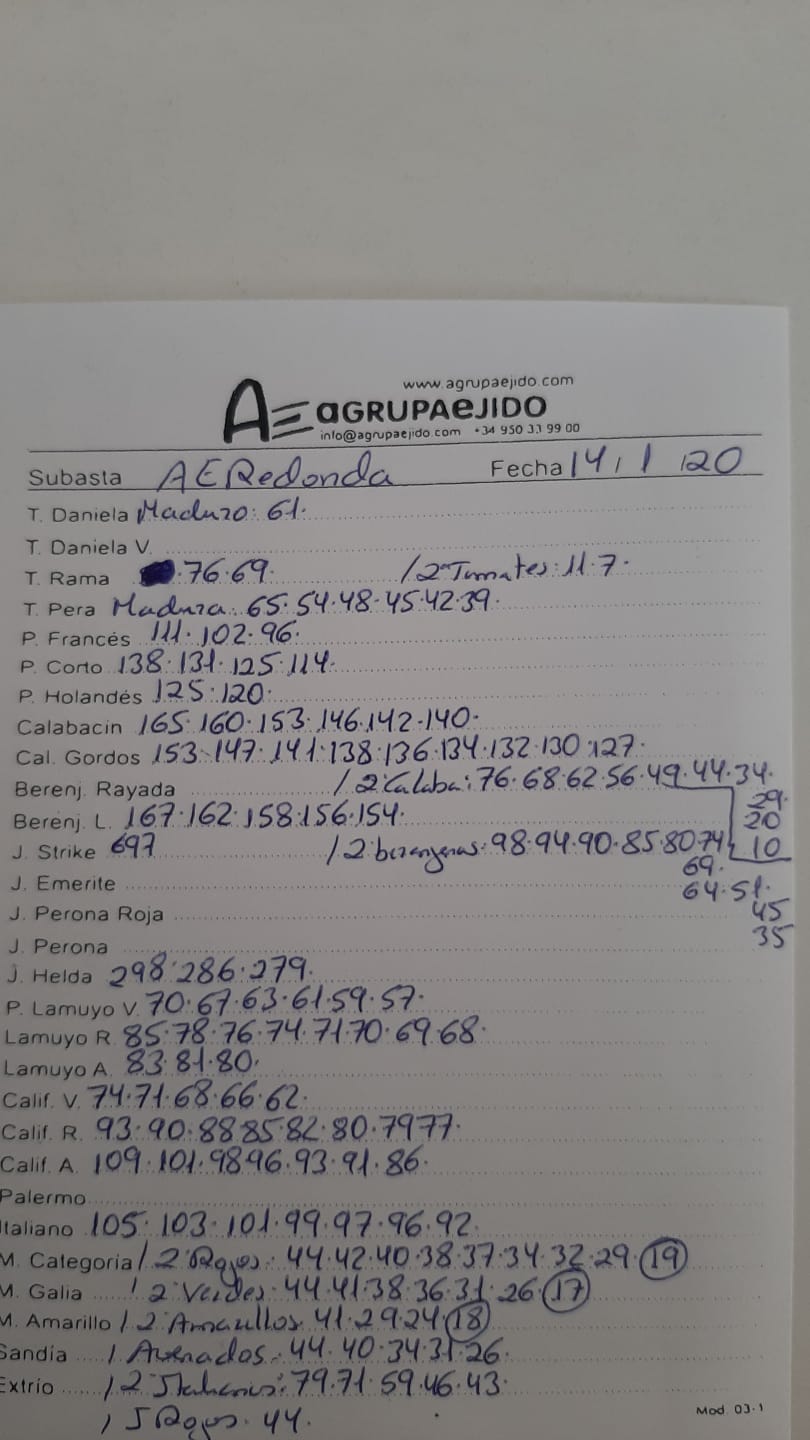 www.agrupaejido.com
AE aGRUPAeJIDO
info@agrupaejido.com +34 950 33 99 00
Subasta AERedonda Fecha 14/1/20
T. Daniela Maduro: 61.
T. Daniela V.
T. Rama .76.69. /2ª Tomates: 11.7.
T. Pera Madura. 65.54.48.45.42.39.
P. Francés 111.102.96.
P. Corto 138.131.125.114.
P. Holandés 125.120.
Calabacin 165.160.153.146.142.140.
Cal. Gordos 153.147.141.138.136.134.132.130.127.
Berenj. Rayada /2ª Calaba: 76.68.62.56.49.44.34.
29.
Berenj. L. 167.162.158.156.154. 20
J. Strike 697 /2 berenjenas: 98.94.90.85.80.74 10
69.
J. Emerite 64.51.
J. Perona Roja 45
J. Perona 35
J. Helda 298.286.279.
P. Lamuyo V. 70.67.63.61.59.57.
Lamuyo R. 85.78.76.74.71.70.69.68.
Lamuyo A. 83.81.80.
Calif. V. 74.71.68.66.62.
Calif. R. 93.90.88.85.82.80.79.77.
Calif. A. 109.101.98.96.93.91.86.
Palermo
Italiano 105.103.101.99.97.96.92.
M. Categoria / 2ª Rojos: 44.42.40.38.37.34.32.29.19
M. Galia / 2ª Verdes: 44.41.38.36.31.26.17
M. Amarillo / 2ª Amarillos. 41.29.24.18
Sandía / Asurados: 44.40.34.31.26.
Extrío / 2ª Italianos: 79.71.59.46.43.
/ J Rojos. 44.
Mod. 03-1